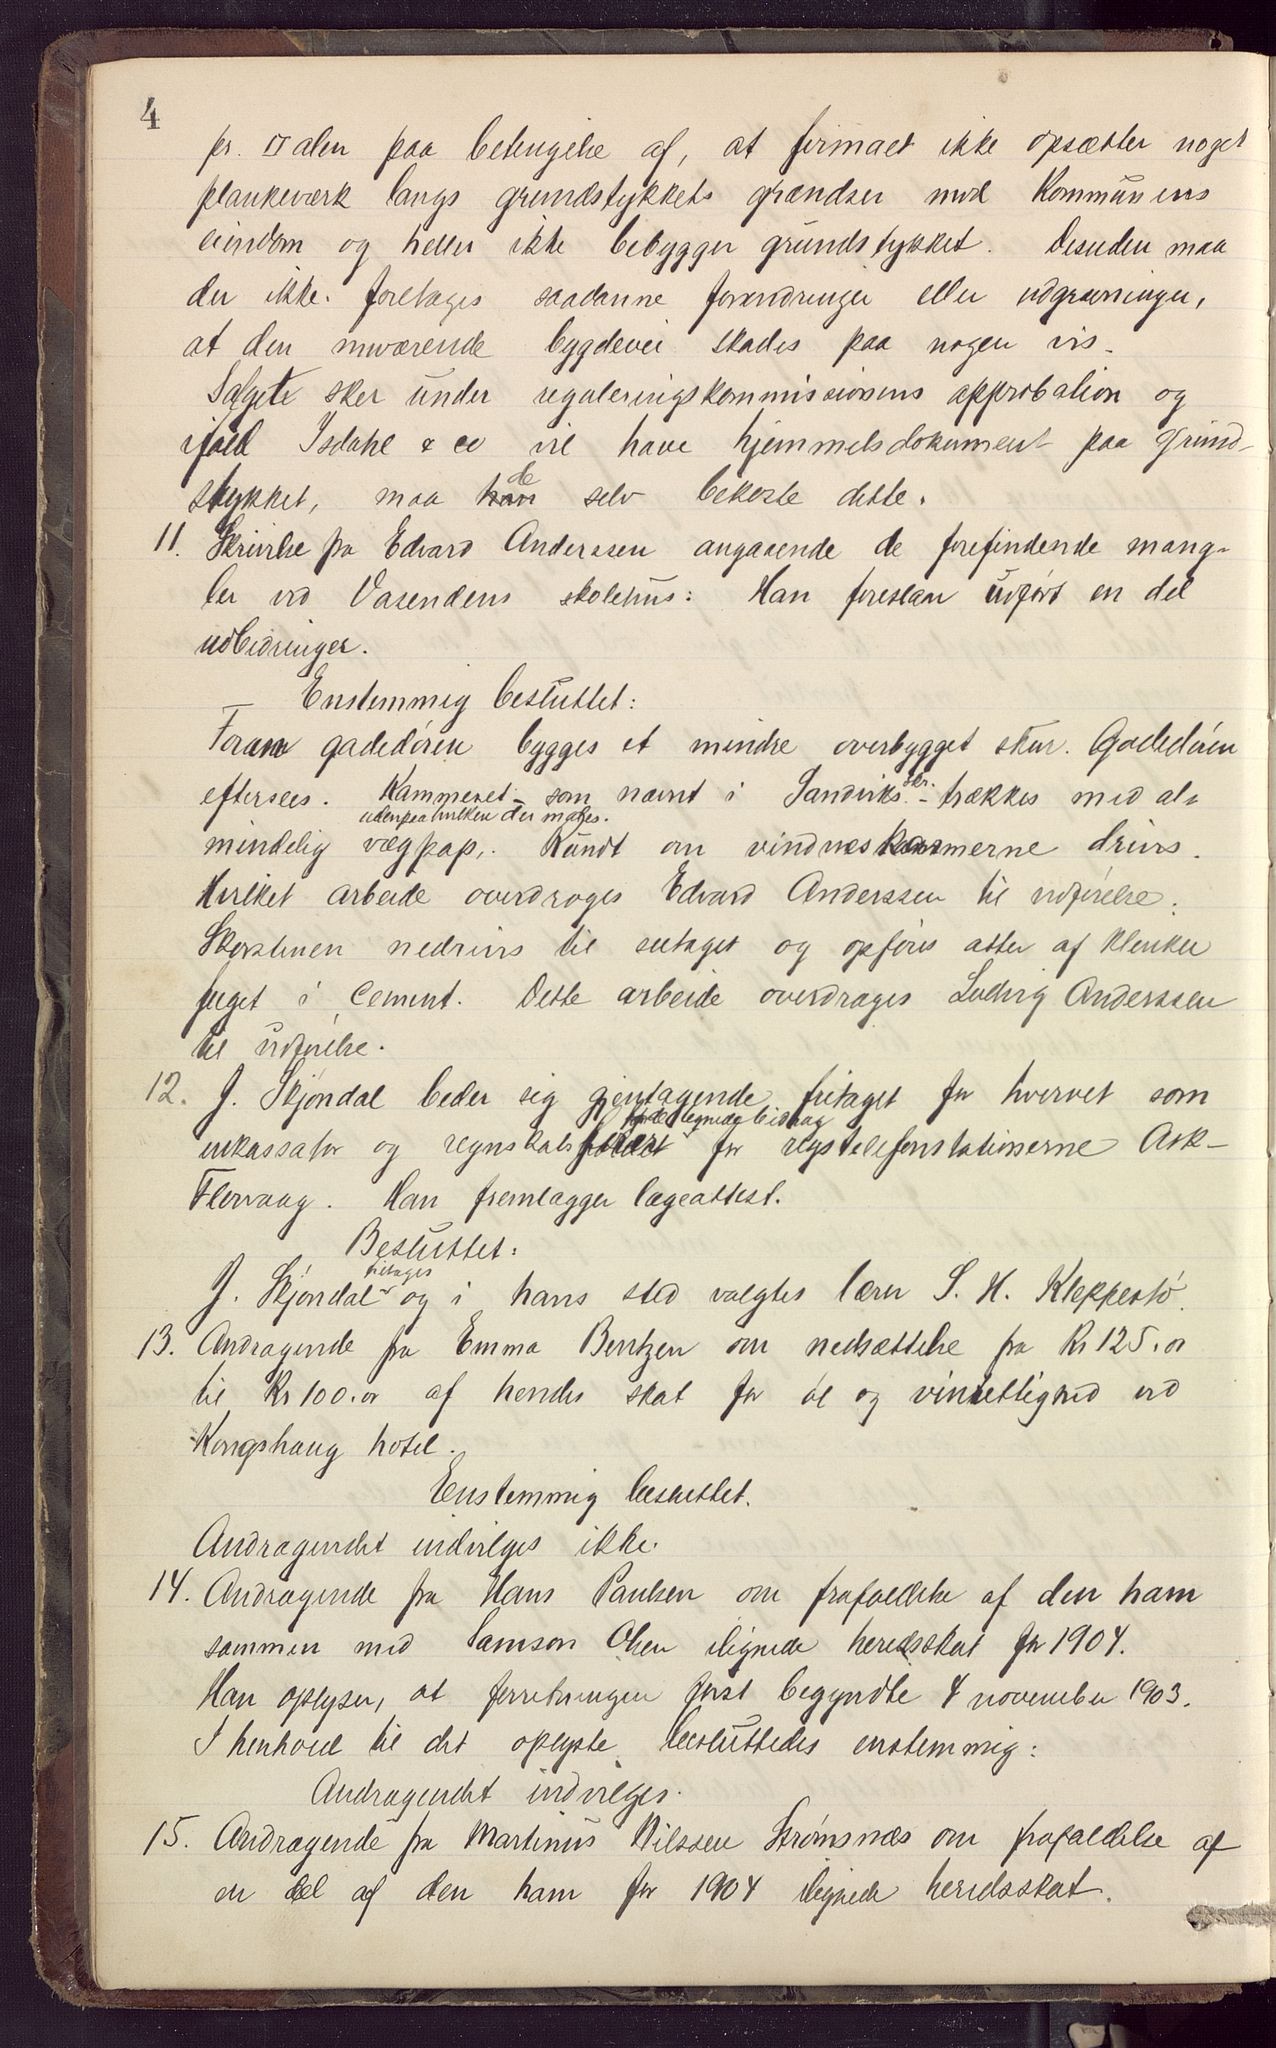 4
pr. □ alen paa betingelse af, at firmaet ikke opsætter noget
plankeværk langs grundstykkets grændser mod Kommunens
eiendom og heller ikke bebygger grundstykket. Desuden maa
der ikke foretages saadanne forandringer eller udgravninger,
at den nuværende bygdevei skades paa nogen vis.
Salgete sker under reguleringskommissionens approbation og
ifald Isdahl & co vil have hjemmelsdokument paa grund-
stykket, maa de selv bekoste dette.
11. Skrivelse fra Edvard Anderssen angaaende de forefindende mang-
ler ved Vasendens skolehus: Han foreslaar udført en del
udbedringer.
Enstemmig besluttet:
Foran gadedøren bygges et mindre overbygget skur. Gadedøren
eftersees. Kammeret – som nævnt i Sandviks skr. – trækkes med al-
udenpaa hvilken der males.
mindelig vægpap,. Rundt om vindueskarmerne drives.
Hvilket arbeide overdrages Edvard Anderssen til udførelse.
Skorstenen nedrives til sutaget og opføres atter af klinker
fuget i cement. Dette arbeide overdrages Ludvig Anderssen
til udførelse.
12. J. Skjøndal beder sig gjentagende fritaget for hvervet som
inkassator og regnskabsfører for rigstelefonstationerne Ask–
Florvaag. Han fremlægger lægeattest.
Besluttet:
fritages
J. Skjøndal og i hans sted valgtes lærer S. H. Kleppestø.
13. Andragende fra Emma Berntzen om nedsættelse fra Kr 125.00
til Kr 100.00 af hendes skat for øl og vinrettighed ved
Kongshaug hotel.
Enstemmig besluttet.
Andragendet indvilges ikke.
14. Andragende fra Hans Paulsen om frafaldelse af den ham
sammen med Samson Olsen ilignede heredsskat for 1904.
Han oplyser, at forretningen først begyndte 4 november 1903.
I henhold til det oplyste besluttedes enstemmig:
Andragendet indvilges.
15. Andragende fra Martinus Nilssen Strømsnæs om frafaldelse af
en del af den ham for 1904 ilignede heredsskat.